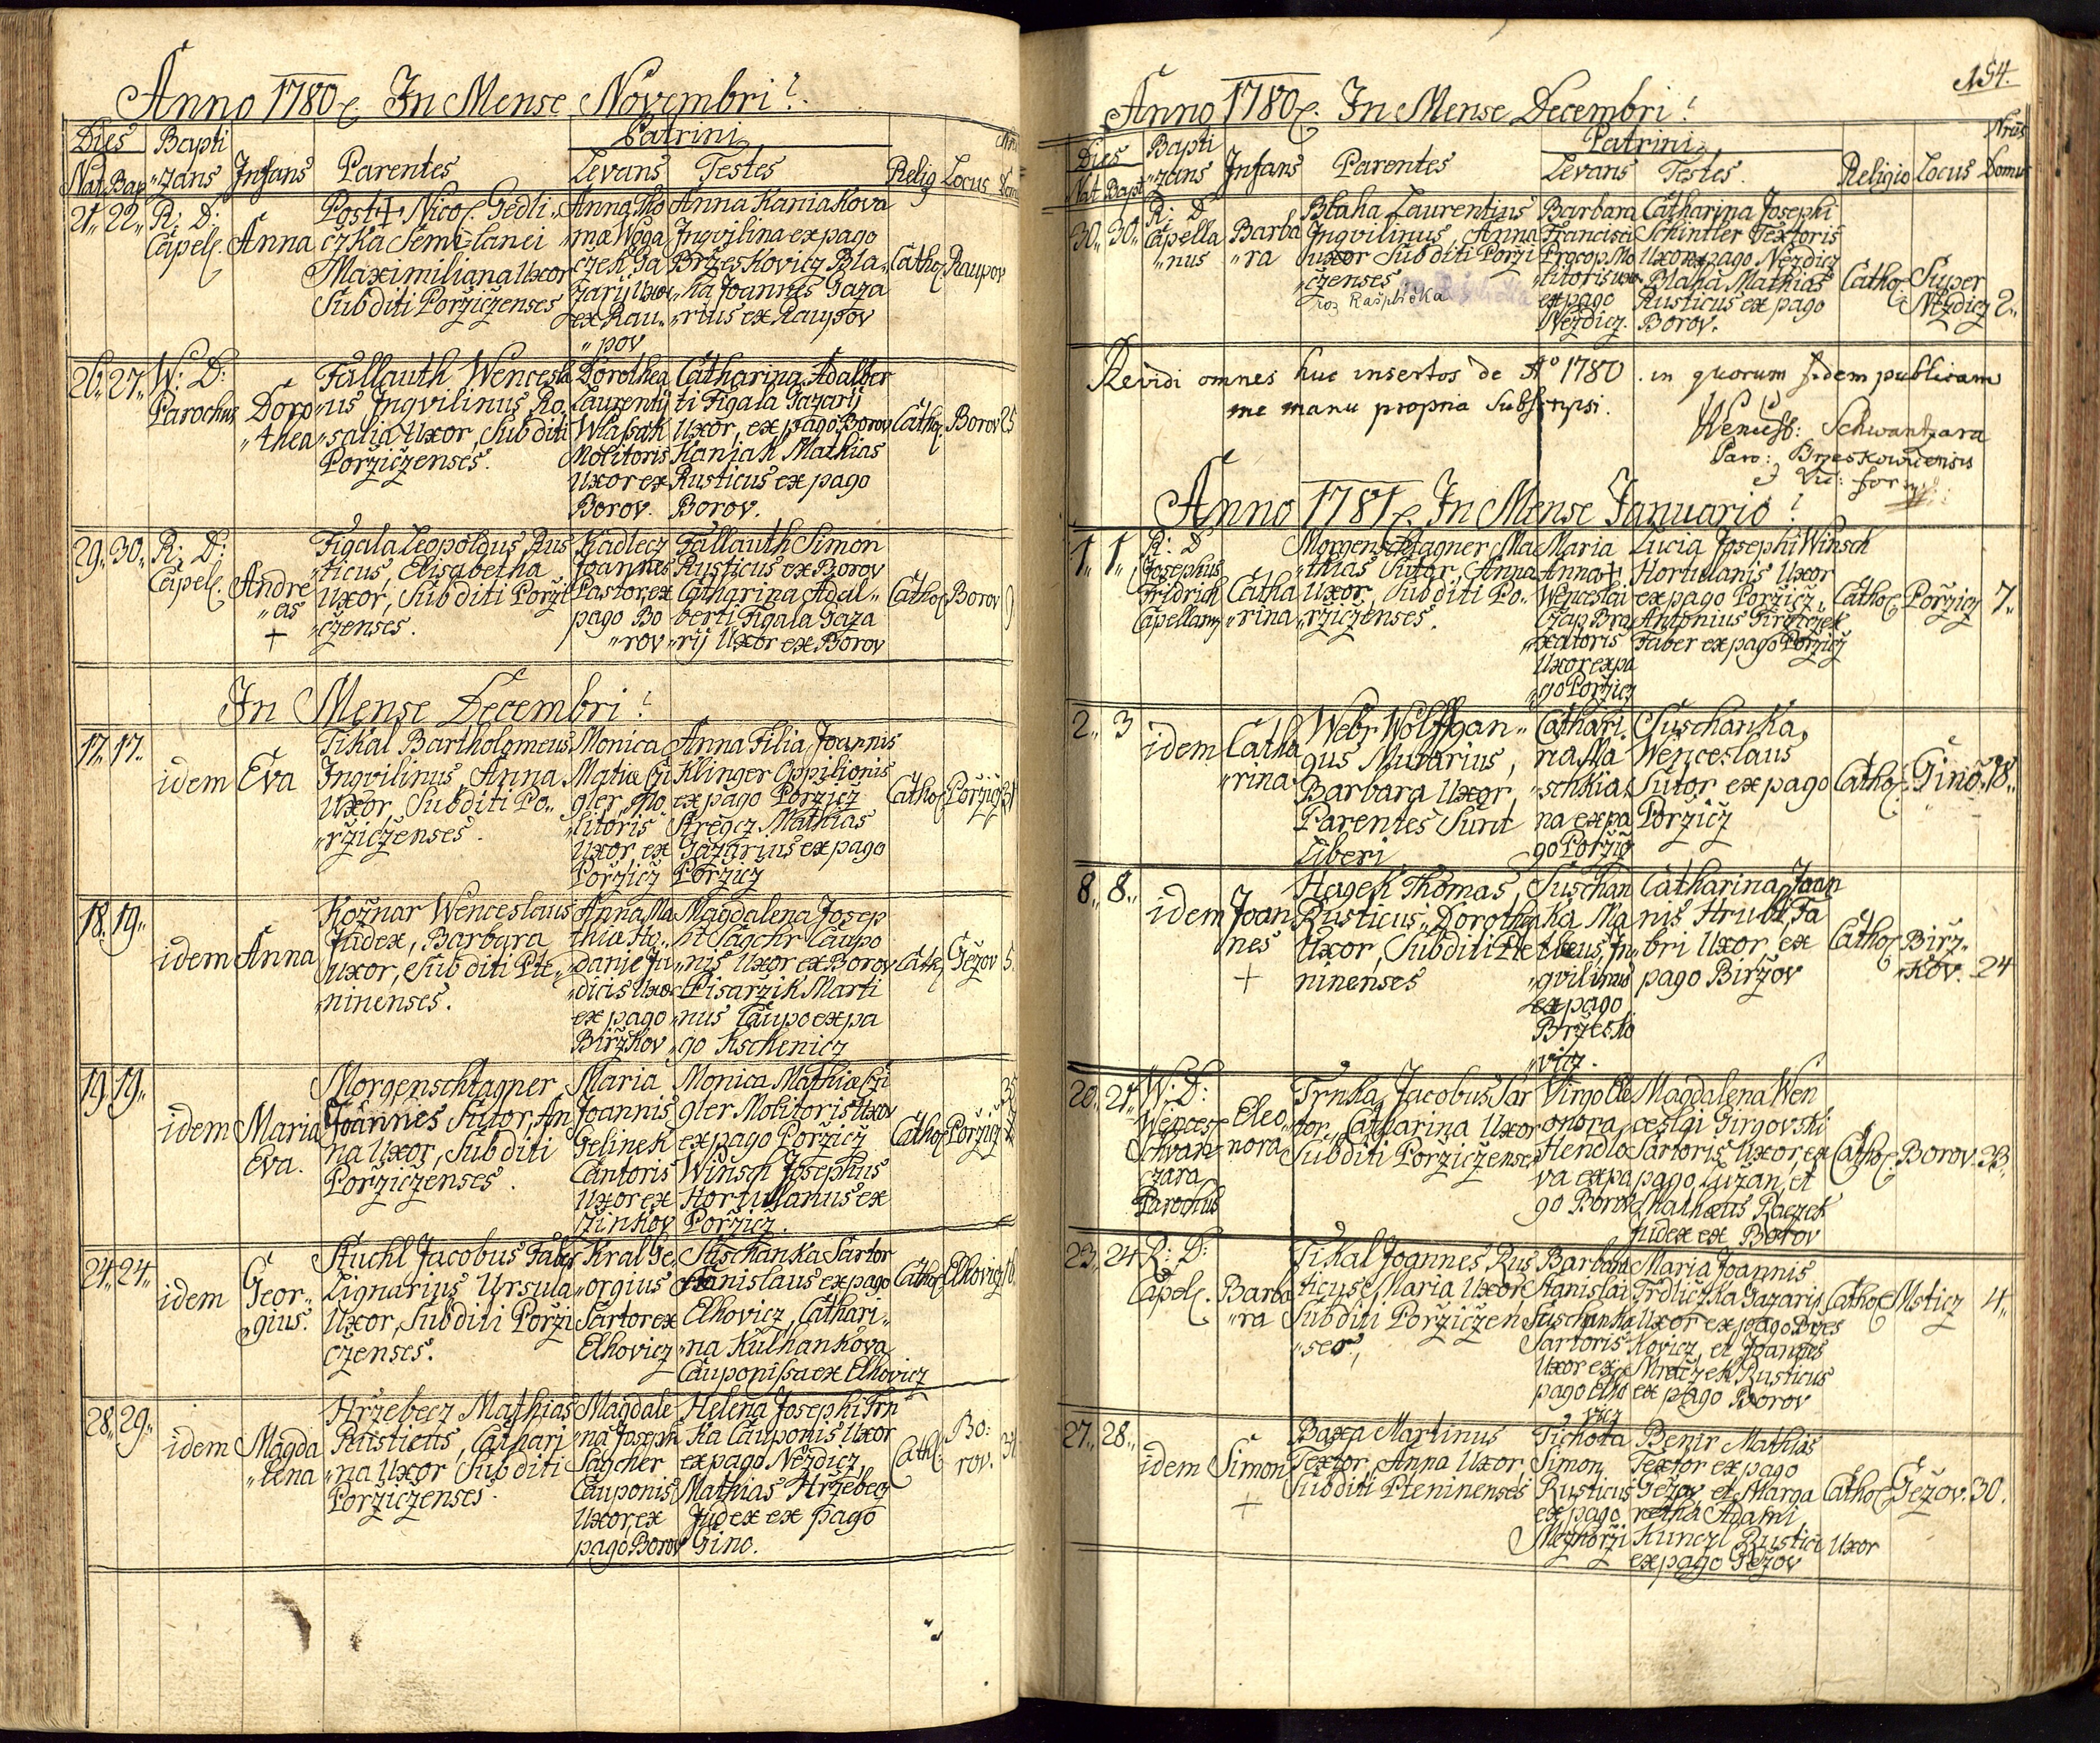 Anno 1780. In Mense Novembri
Dies Bapti Patrini
Nat. Bap. "zans Infans Parentes Levans Testes Relig Locus
21. 22. R: D: Capel. Anna
Post + Nicol. Gedli"
czka Semi-lanei
Maximiliana Uxor
Subditi Porziczenses
Anna Tho
"mæ Woga
czek Ga
zarij Uxor
ex Rau"
"pov
Anna Kaniakova
Ingvilina ex pago
Brzeskovicz Bla"
"ha Joannes Gaza
"rius ex Raupov
Cathol. Raupov
26. 27. W: D: Parochus Doro "thea
Fallauth Wencesla
"us Ingvilinus Ro
"salia Uxor, Subditi
Porziczenses.
Dorothea
Laurentij
Wlasak
Molitoris
Uxor ex
Borov.
Catharina Adalber
ti Figala Gazarij
Uxor, ex pago Borov
Kaniak Mathias
Rusticus ex pago
Borov.
Cathol. Borov 25
29. 30. R: D: Capel. Andre "as +
Figala Leopoldus Rus
"ticus, Elisabetha
Uxor, Subditi Porzi
"czenses.
Kadlecz
Joannes
Pastor, ex
pago Bo
"rov
Fallauth Simon
Rusticus ex Borov
Catharina Adal"
berti Figala Gaza
"rij Uxor ex Borov
Cathol. Borov
In Mense Decembri
17. 17. idem Eva
Tikal Bartholomeus
Ingvilinus Anna
Uxor, Subditi Po"
"rziczenses.
Monica
Matiæ Czi
gler, Mo
"litoris
Uxor, ex
Porzicz
Anna Filia Joannis
Klinger Oppilionis
ex pago Porzicz
Stregcz Mathias
Gazarius ex pago
Porzicz
Cathol. Porzicz
18. 19. idem Anna
Kožnar Wenceslaus
Judex, Barbara
Uxor, Subditi Pte"
"ninenses.
Anna Ma
thiæ Ho"
"danie Ju
"dicis Uxor
ex pago
Birzkov
Magdalena Josep
hi Sagchr Caupo
"nis Uxor ex Borov
Pisarzik Marti
"nus Caupo ex pa
"go Kschenicz
Cath. Gežov 5.
19. 19. idem Maria Eva.
Morgenschtagner
Joannes Sutor, An
na Uxor, Subditi
Porziczenses.
Maria
Joannis
Gelinek
Cantoris
Uxor ex
Zinkov
Monica Mathiæ Czi
gler Molitoris Uxor
ex pago Porzicz
Winsch Josephus
Hortulanus ex
Porzicz.
Cathol. Porzicz
24. 24. idem Geor" gius.
Stuchl Jacobus Faber
Lignarius Ursula
Uxor, Subditi Porzi
czenses.
Kral Ge"
orgius
Sartor ex
Elhovicz
Suschanka Sartor
Stanislaus ex pago
Elhovicz, Cathari"
"na Kulhankova
Cauponissa ex Elhovicz
Cathol. Elhovicz
28. 29. idem Magda "lena
Hrzebecz Mathias
Rusticus, Cathari
"na Uxor Subditi
Porziczenses.
Magdale
"na Joseph
Sagcher
Cauponis
Uxor, ex
pago Borov
Helena Josephi Trn
ka Cauponis Uxor
ex pago Nezdicz,
Mathias Hrzebecz
Judex ex pago
Gino.
Cathl. Bo: rov.
154.
Anno 1780. In Mense Decembri
Dies Bapti Patrini Nrus
Nat. Bapt. "zans Infans Parentes Levans Testes. Religio Locus Domus
30. 30. R: D. Capella "nus Barba "ra
Blaha Laurentius
Ingvilinus, Anna
Uxor Subditi Porzi
"czenses
roz Rašplička
Barbara
Francisci
Procop Mo
"litoris uxor
ex pago
Nezdicz.
Catharina Josephi
Schintler Textoris
Uxor ex pago Nezdicz
Blaha Mathias
Rusticus ex pago
Borov.
Cathol. Super Nezdicz 2.
Revidi omnes huc insertos de Ao 1780. in quorum fidem publicam
me manu propria Subscripsi.
Wencesl: Schwantzara
Paro: Brzeskowicensis
Anno 1781. In Mense Januario
1. 1. R: D Josephus Fridrich Capellanus Catha "rina
Morgenschtagner Ma
"thias Sutor, Anna
Uxor, Subditi Po"
"rziczenses.
Maria
Anna +
Wenceslai
Czap Bra
"xatoris
Uxor ex pa
"go Porzicz
Lucia Josephi Winsch
Hortulanis Uxor
ex pago Porzicz,
Antonius
Faber ex pago Porzicz
Cathol. Porzicz 7.
2. 3 idem Catha "rina
Webr Wolffgan"
gus Murarius,
Barbara Uxor,
Parentes Sunt
Liberi
Cathari"
na Ma
"schkia"
na ex pa
go Porzicz
Suschanka,
Wenceslaus
Sutor ex pago
Porzicz
Cathol. Gino. 18.
8. 8. idem Joan nes +
Hagek Thomas
Rusticus, Dorothea
Uxor, Subditi Pte
ninenses
Suschan
ka Ma
theus, In"
"gvilinus
ex pago
Brzesko
"vicz.
Catharina Joan
nis Hrubi Fa
bri Uxor, ex
pago Birzov
Cathol. Birz" "kov. 24
20. 21. W: D: Wencesl Schvan" czara Parochus Eleo" nora
Trnka Jacobus Sar
tor, Catharina Uxor
Subditi Porziczenses
Virgo Ele
onora
Hendlo
va ex pa
go Borov
Magdalena Wen
ceslai Girgovski
Sartoris Uxor, ex
pago Luzan, et
Mathæus Raczek
Judex ex Borov
Cathol. Borov. 23.
23. 24 R: D: Capel. Barba "ra
Tikal Joannes Rus
ticus, Maria Uxor
Subditi Porziczen
"ses,
Barbara
Stanislai
Suschanka
Sartoris
Uxor ex
pago Elho
vicz
Maria Joannis
Trdliczka Gazarij
Uxor ex pago Brzes
kovicz, et Joannes
Mraczek Rusticus
ex pago Borov
Cathol. Msticz 4.
27. 28. idem Simon +
Baxa Martinus
Textor, Anna Uxor
Subditi Pteninenses
Tichota
Simon
Rusticus
ex pago
Mezhorzi
Benir Mathias
Textor ex pago
Gezov, et Marga
retha Adami
Kunczl Rustici Uxor
ex pago Gezov
Cathol. Gežov. 30.